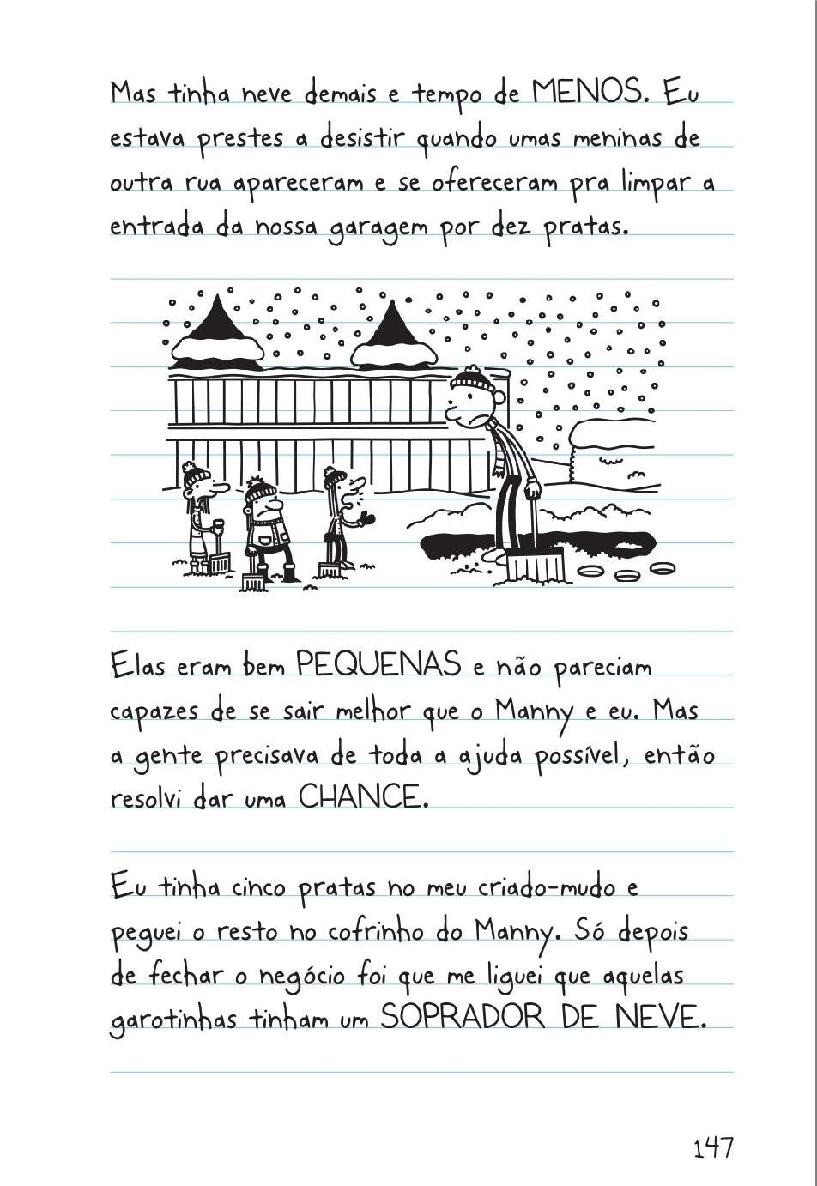 Mas tinha neve demais e tempo de MENOS. Eu
estava prestes a desistir quando umas meninas de
outra rua apareceram e se ofereceram pra limpar a
entrada da nossa garagem por dez pratas.
Elas eram bem PEQUENAS e não pareciam
capazes de se sair melhor que o Manny e eu. Mas
a gente precisava de toda a ajuda possível, então
resolvi dar uma CHANCE.
Eu tinha cinco pratas no meu criado-mudo e
peguei o resto no cofrinho do Manny. Só depois
de fechar o negócio foi que me liguei que aquelas
garotinhas tinham um SOPRADOR DE NEVE.
147